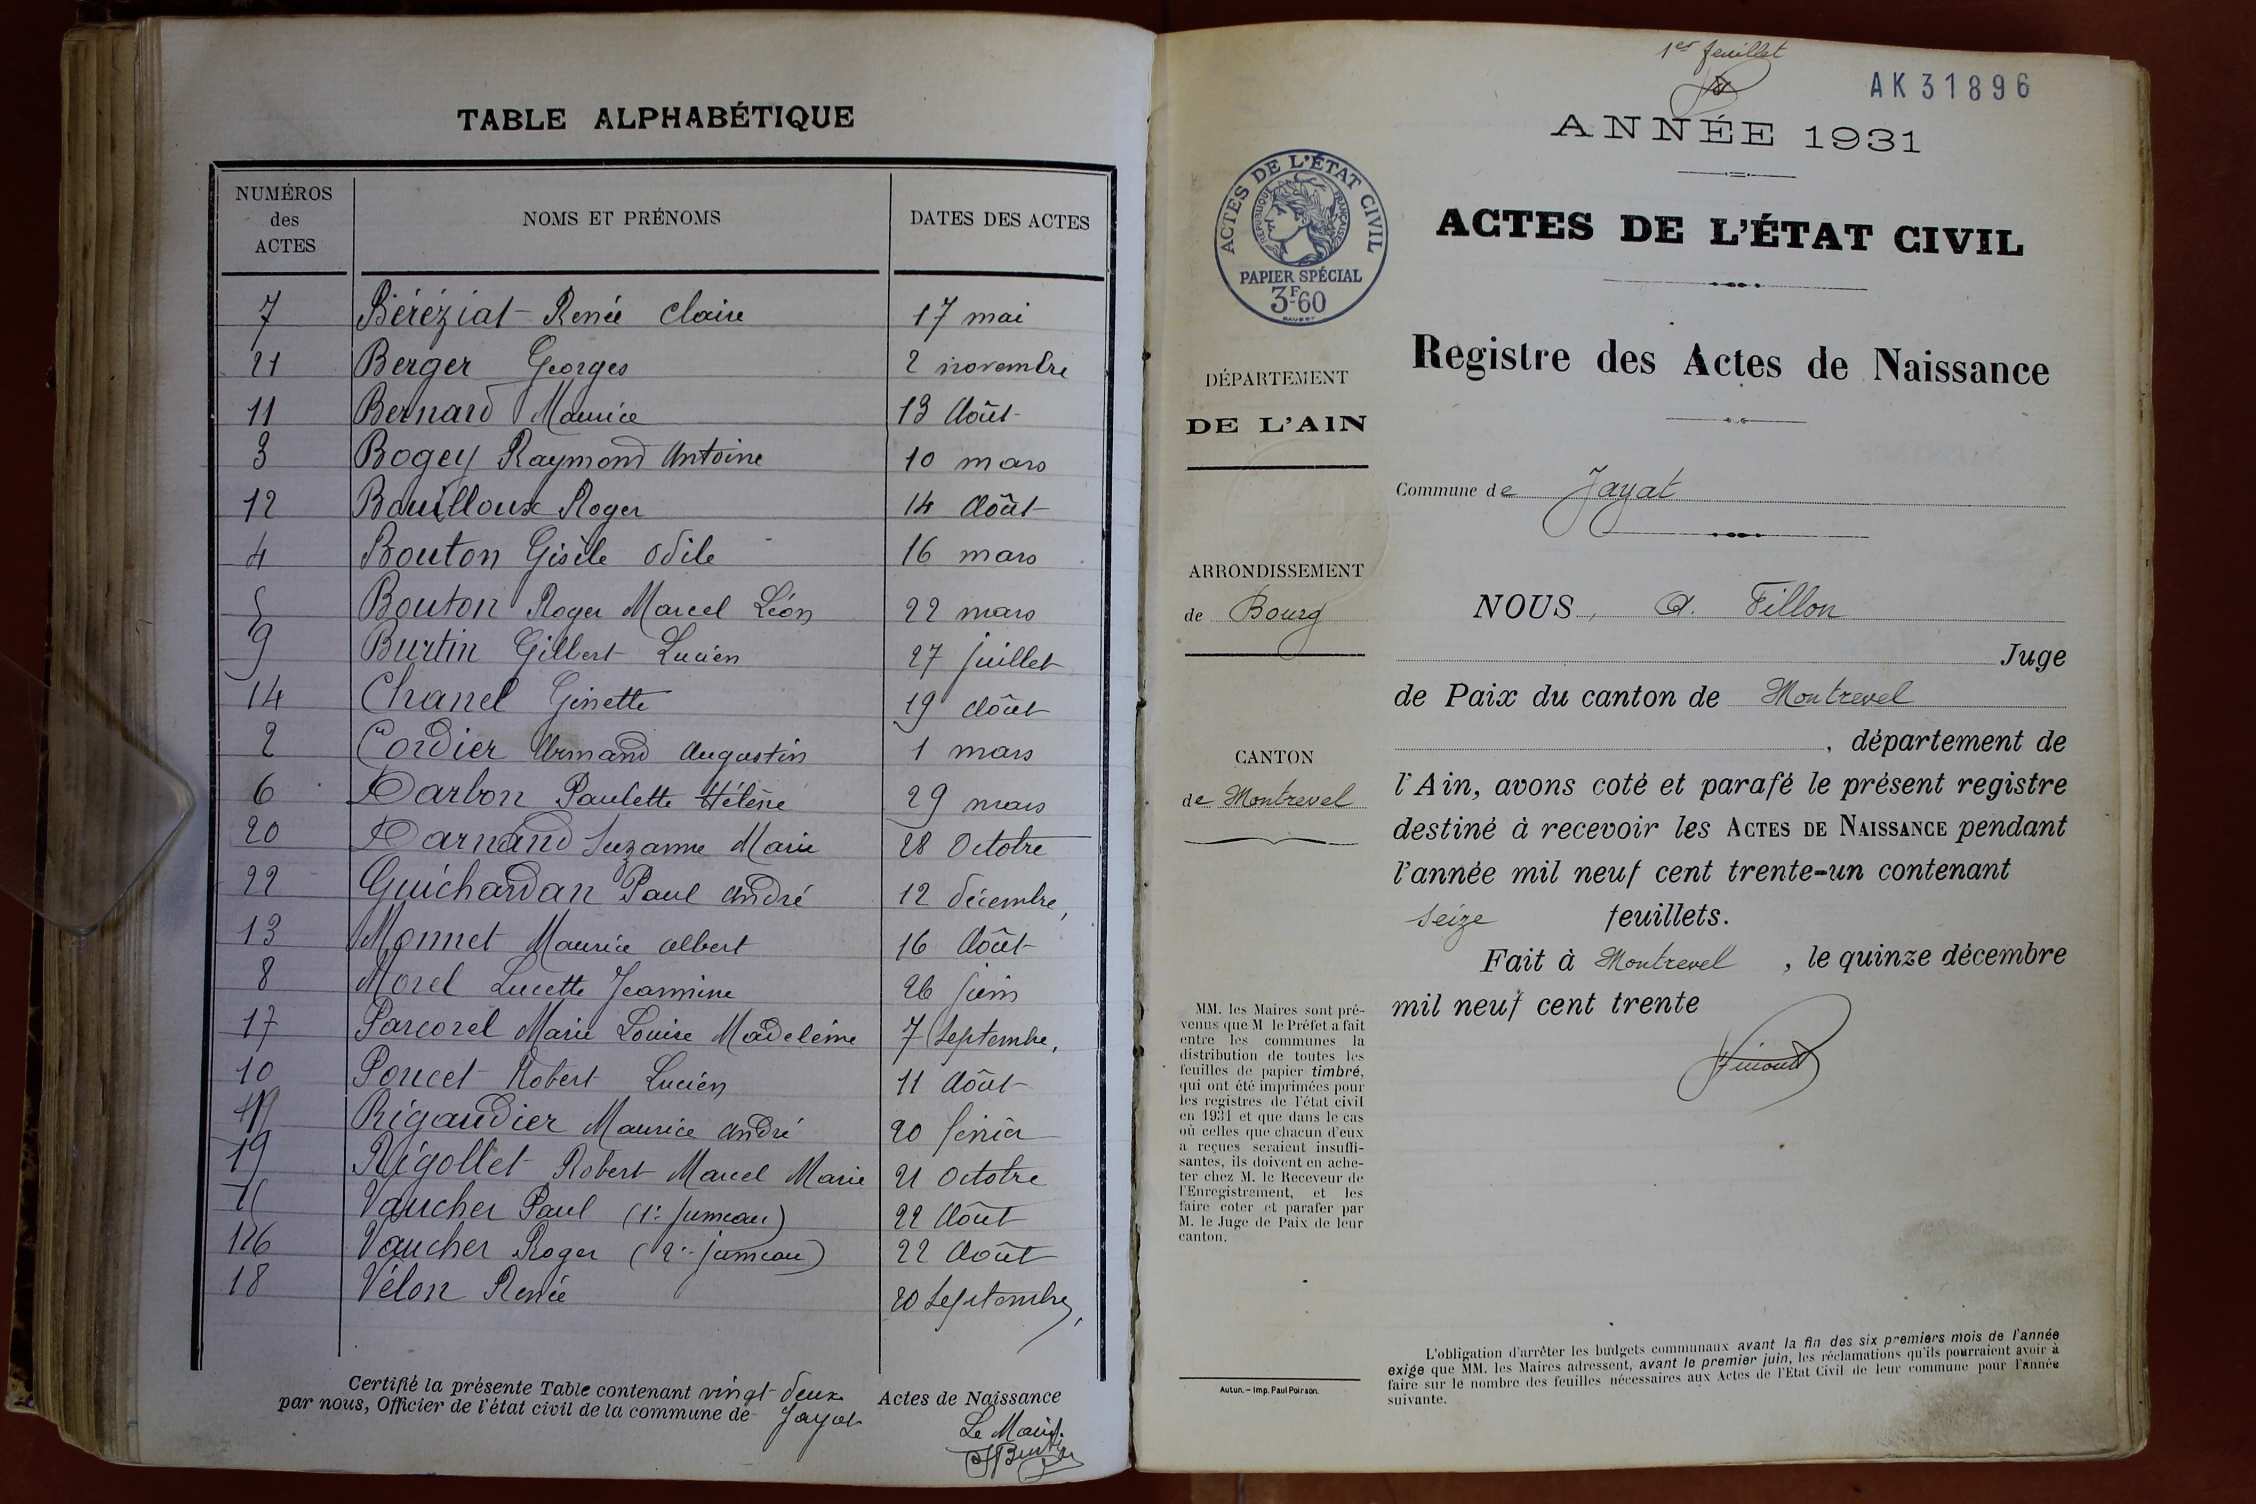 TABLE ALPHABÉTIQUE
NUMÉROS des ACTES NOMS ET PRÉNOMS DATES DES ACTES
7 Béréziat Renée Claire 17 mai
21 Berger Georges 2 novembre
11 Bernard Maurice 13 Août
3 Bogey Raymond Antoine 10 mars
12 Bouilloux Roger 14 Août
4 Bouton Gisèle Odile 16 mars
5 Bouton Roger Marcel Léon 22 mars
9 Burtin Gilbert Lucien 27 juillet
14 Chanel Ginette 19 Août
2 Cordier Armand Augustin 1 mars
6 Darbon Paulette Hélène 29 mars
20 Darnand Suzanne Marie 28 Octobre
22 Guichardan Paul André 12 décembre,
13 Monnet Maurice Albert 16 Août
8 Morel Lucette Jeannine 26 juin
17 Parcorel Marie Louise Madeleine 7 Septembre,
10 Poncet Robert Lucien 11 Août
Rigaudier Maurice André 20 février
19 Rigollet Robert Marcel Marie 21 Octobre
Vaucher Paul (1er jumeau) 22 Août
16 Vaucher Roger (2e jumeau) 22 Août
18 Vélon Renée 20 Septembre,
Certifié la présente Table contenant vingt-deux Actes de Naissance
par nous, Officier de l'état civil de la commune de Jayat
Le Maire
1er feuillet
AK 31896
ANNÉE 1931
ACTES DE L'ÉTAT CIVIL
RÉPUBLIQUE FRANÇAISE
PAPIER SPÉCIAL
3F60
ACTES DE L'ÉTAT CIVIL
Registre des Actes de Naissance
DÉPARTEMENT
DE L'AIN
Commune de Jayat
ARRONDISSEMENT
de Bourg
CANTON
de Montrevel
NOUS, A. Fillon
Juge
de Paix du canton de Montrevel
, département de
l'Ain, avons coté et parafé le présent registre
destiné à recevoir les ACTES DE NAISSANCE pendant
l'année mil neuf cent trente-un contenant
seize feuillets.
Fait à Montrevel, le quinze décembre
mil neuf cent trente
MM. les Maires sont pré-
venus que M le Préfet a fait
entre les communes la
distribution de toutes les
feuilles de papier timbré,
qui ont été imprimées pour
les registres de l'état civil
en 1931 et que dans le cas
où celles que chacun d'eux
a reçues seraient insuffi-
santes, ils doivent en ache-
ter chez M. le Receveur de
l'Enregistrement, et les
faire coter et parafer par
M. le Juge de Paix de leur
canton.
Autun. — Imp. Paul Poirson.
L'obligation d'arrêter les budgets communaux avant la fin des six premiers mois de l'année
exige que MM. les Maires adressent, avant le premier juin, les réclamations qu'ils pourraient avoir à
faire sur le nombre des feuilles nécessaires aux Actes de l'Etat Civil de leur commune pour l'année
suivante.